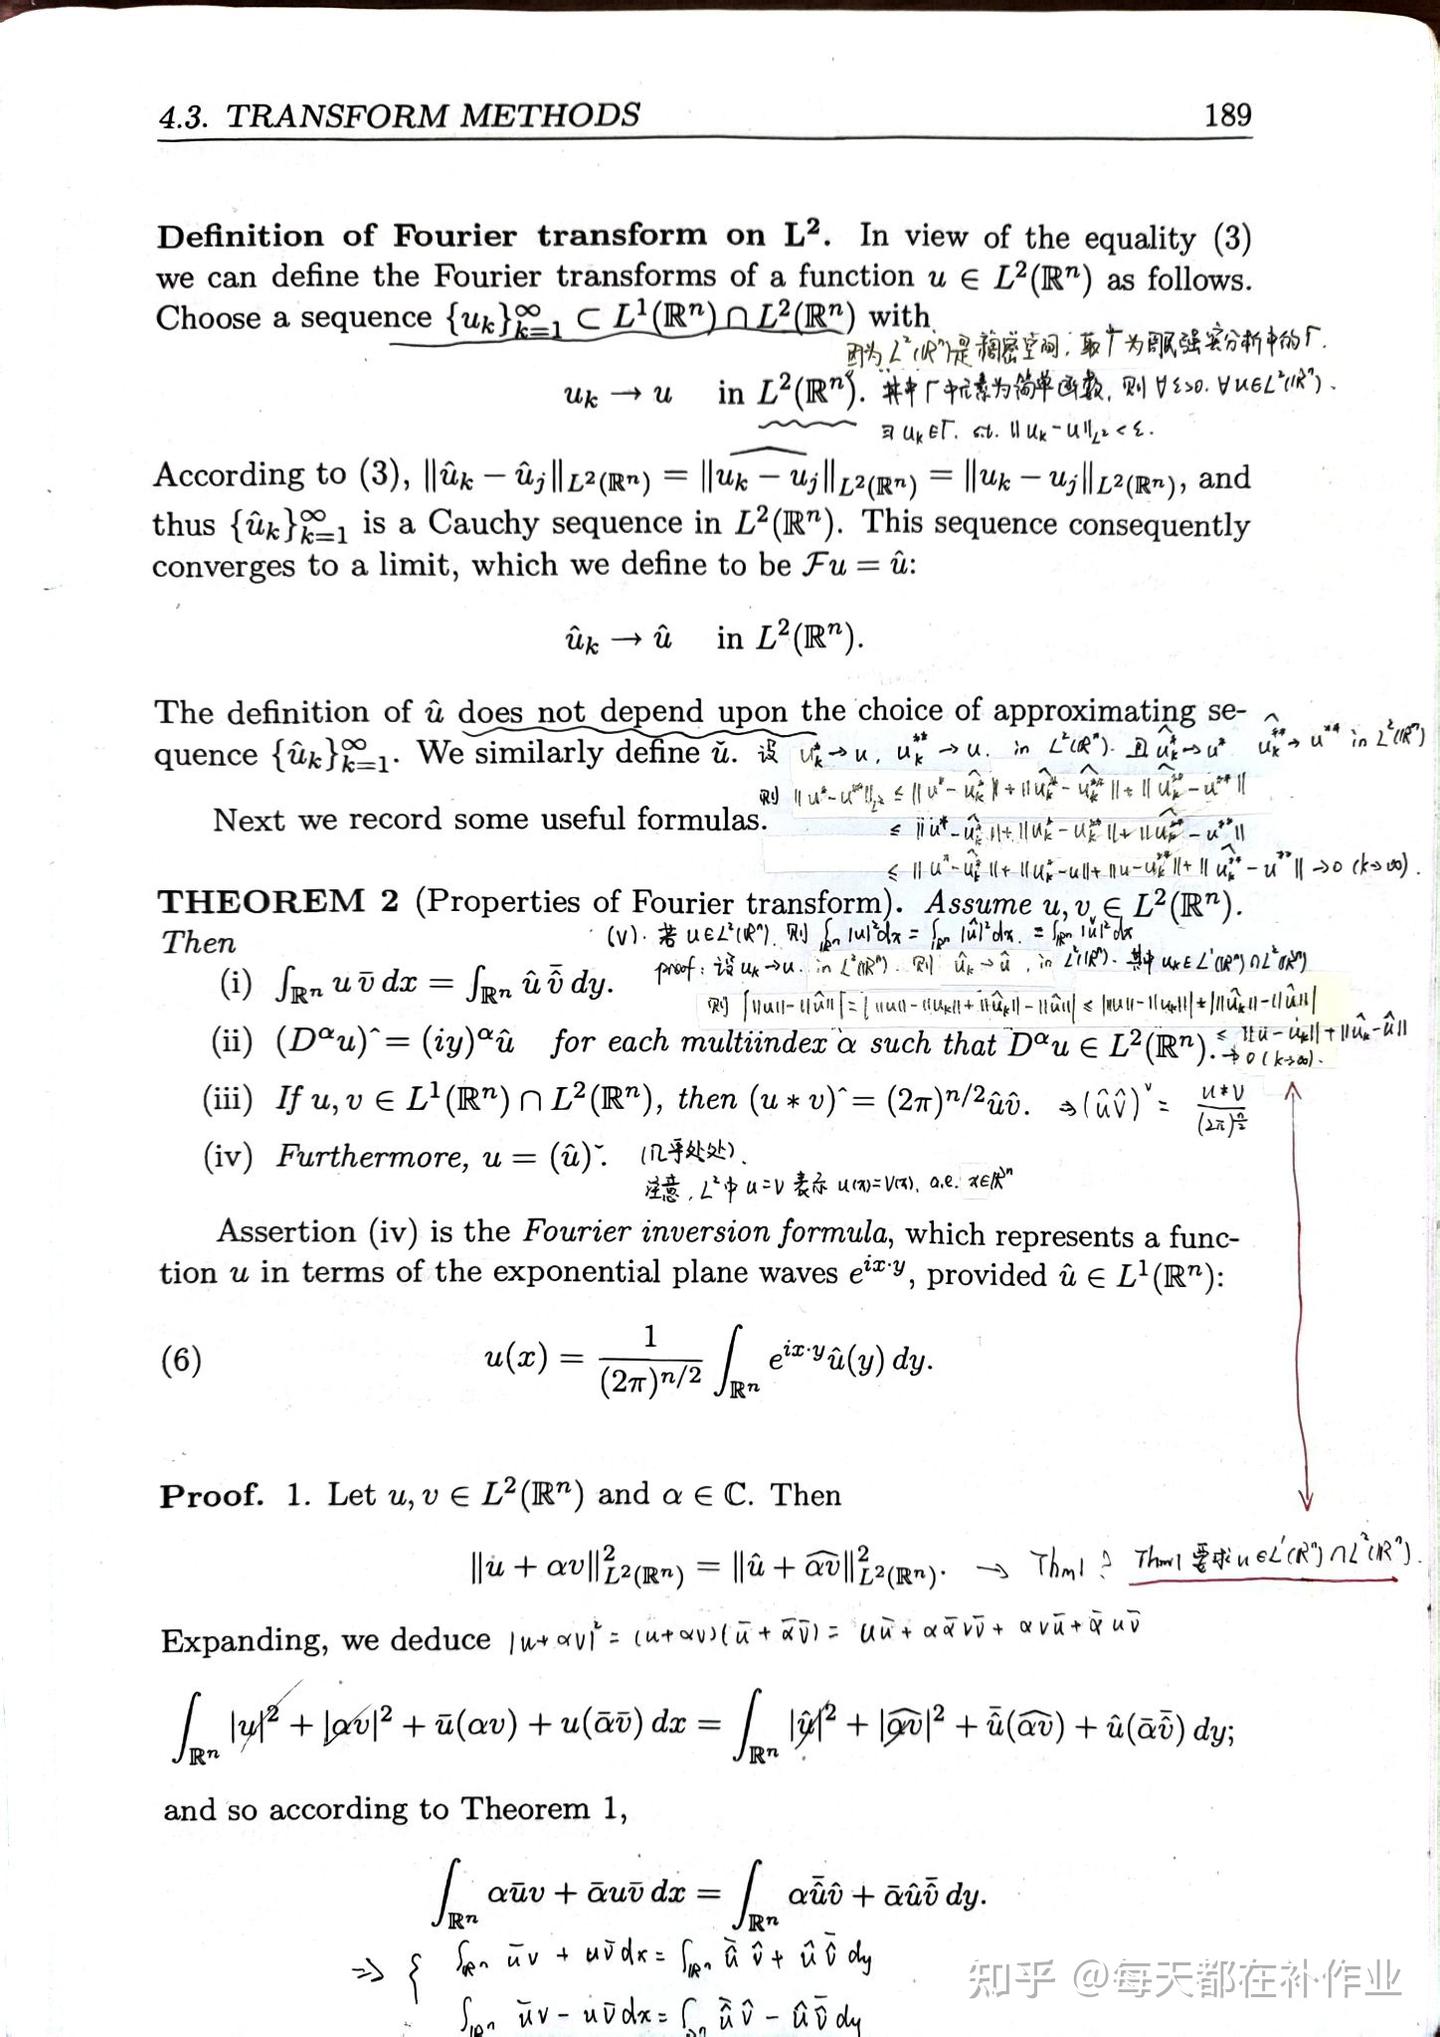 4.3. TRANSFORM METHODS 189
Definition of Fourier transform on L². In view of the equality (3)
we can define the Fourier transforms of a function u ∈ L²(ℝⁿ) as follows.
Choose a sequence {u_k}_{k=1}^∞ ⊂ L¹(ℝⁿ) ∩ L²(ℝⁿ) with
因为 L²(ℝⁿ)是稠密空间,取Γ为周民强实分析中的Γ.
u_k → u in L²(ℝⁿ). 其中Γ中元素为简单函数, 则 ∀ε>0. ∀u∈L²(ℝⁿ).
∃ u_k∈Γ. s.t. ||u_k - u||_{L²} < ε.
According to (3), ‖û_k − û_j‖_{L²(ℝⁿ)} = ‖\widehat{u_k − u_j}‖_{L²(ℝⁿ)} = ‖u_k − u_j‖_{L²(ℝⁿ)}, and
thus {û_k}_{k=1}^∞ is a Cauchy sequence in L²(ℝⁿ). This sequence consequently
converges to a limit, which we define to be ℱu = û:
û_k → û in L²(ℝⁿ).
The definition of û does not depend upon the choice of approximating se-
quence {û_k}_{k=1}^∞. We similarly define ǔ. 设 u_k^* → u, u_k^{**} → u. in L²(ℝⁿ). 且 \hat{u_k^*} → u^* \hat{u_k^{**}} → u^{**} in L²(ℝⁿ)
则 ||u^* - u^{**}||_{L²} ≤ ||u^* - \hat{u_k^*}|| + ||\hat{u_k^*} - \hat{u_k^{**}}|| + ||\hat{u_k^{**}} - u^{**}||
Next we record some useful formulas. ≤ ||u^* - \hat{u_k^*}|| + ||u_k^* - u_k^{**}|| + ||\hat{u_k^{**}} - u^{**}||
≤ ||u^* - \hat{u_k^*}|| + ||u_k^* - u|| + ||u - u_k^{**}|| + ||\hat{u_k^{**}} - u^{**}|| → 0 (k→∞).
THEOREM 2 (Properties of Fourier transform). Assume u, v ∈ L²(ℝⁿ).
Then (V). 若 u∈L²(ℝⁿ), 则 ∫_{ℝⁿ} |u|² dx = ∫_{ℝⁿ} |û|² dx. = ∫_{ℝⁿ} |ǔ|² dx
proof: 设 u_k → u. in L²(ℝⁿ). 则 û_k → û, in L²(ℝⁿ). 其中 u_k∈L¹(ℝⁿ)∩L²(ℝⁿ)
(i) ∫_{ℝⁿ} u v̄ dx = ∫_{ℝⁿ} û \bar{v̂} dy.
则 | ||u|| - ||û|| | = | ||u|| - ||u_k|| + ||û_k|| - ||û|| | ≤ | ||u|| - ||u_k|| | + | ||û_k|| - ||û|| |
(ii) (D^αu)^ = (iy)^α û for each multiindex α such that D^αu ∈ L²(ℝⁿ). ≤ ||u - u_k|| + ||û_k - û||
→ 0 (k→∞).
(iii) If u, v ∈ L¹(ℝⁿ) ∩ L²(ℝⁿ), then (u ∗ v)^ = (2π)^{n/2} û v̂. ⇒ (û v̂)ˇ = \frac{u*v}{(2π)^{n/2}}
(iv) Furthermore, u = (û)ˇ. (几乎处处).
注意, L²中 u=v 表示 u(x)=v(x), a.e. x∈ℝⁿ
Assertion (iv) is the Fourier inversion formula, which represents a func-
tion u in terms of the exponential plane waves e^{ix·y}, provided û ∈ L¹(ℝⁿ):
(6) u(x) = \frac{1}{(2π)^{n/2}} ∫_{ℝⁿ} e^{ix·y} û(y) dy.
Proof. 1. Let u, v ∈ L²(ℝⁿ) and α ∈ ℂ. Then
‖u + αv‖²_{L²(ℝⁿ)} = ‖û + \widehat{αv}‖²_{L²(ℝⁿ)}. → Thm1 ? Thm1 要求 u∈L¹(ℝⁿ)∩L²(ℝⁿ).
Expanding, we deduce |u+αv|² = (u+αv)(ū + ᾱv̄) = uū + αᾱvv̄ + αvū + ᾱuv̄
∫_{ℝⁿ} |u|² + |αv|² + ū(αv) + u(ᾱv̄) dx = ∫_{ℝⁿ} |û|² + |\widehat{αv}|² + \bar{û}(\widehat{αv}) + û(ᾱ\bar{v̂}) dy;
and so according to Theorem 1,
∫_{ℝⁿ} αūv + ᾱuv̄ dx = ∫_{ℝⁿ} α\bar{û}v̂ + ᾱû\bar{v̂} dy.
⇒ { ∫_{ℝⁿ} ūv + uv̄ dx = ∫_{ℝⁿ} \bar{û} v̂ + û \bar{v̂} dy
∫_{ℝⁿ} ūv - uv̄ dx = ∫_{ℝⁿ} \bar{û} v̂ - û \bar{v̂} dy
知乎 @每天都在补作业